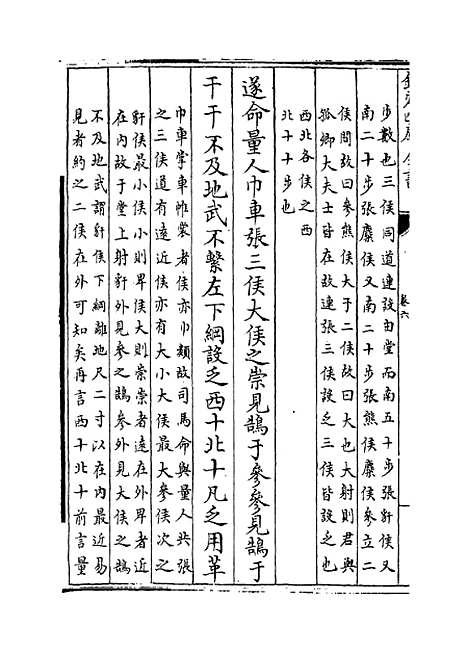 欽定四庫全書
卷六
步數也三侯同道連設由堂而南五十步張豻侯又
南二十步張麋侯又南二十步張熊侯麋侯參立二
侯間故曰參熊侯大于二侯故曰大也大射則君與
孤卿大夫士皆在故連張三侯設乏三侯皆設乏也
西北各侯之西
北十十步也
遂命量人巾車張三侯大侯之崇見鵠于參參見鵠于
干干不及地武不繫左下綱設乏西十北十凡乏用革
巾車掌車帷裳者侯亦巾類故司馬命與量人共張
之三侯道有遠近侯亦有大小大侯最大參侯次之
豻侯最小侯小則卑侯大則崇崇者遠在外卑者近
在內故于堂上射豻外見參之鵠參外見大侯之鵠
不及地武謂豻侯下綱離地尺二寸以在內最近易
見者約之二侯在外可知矣再言西十北十前言量